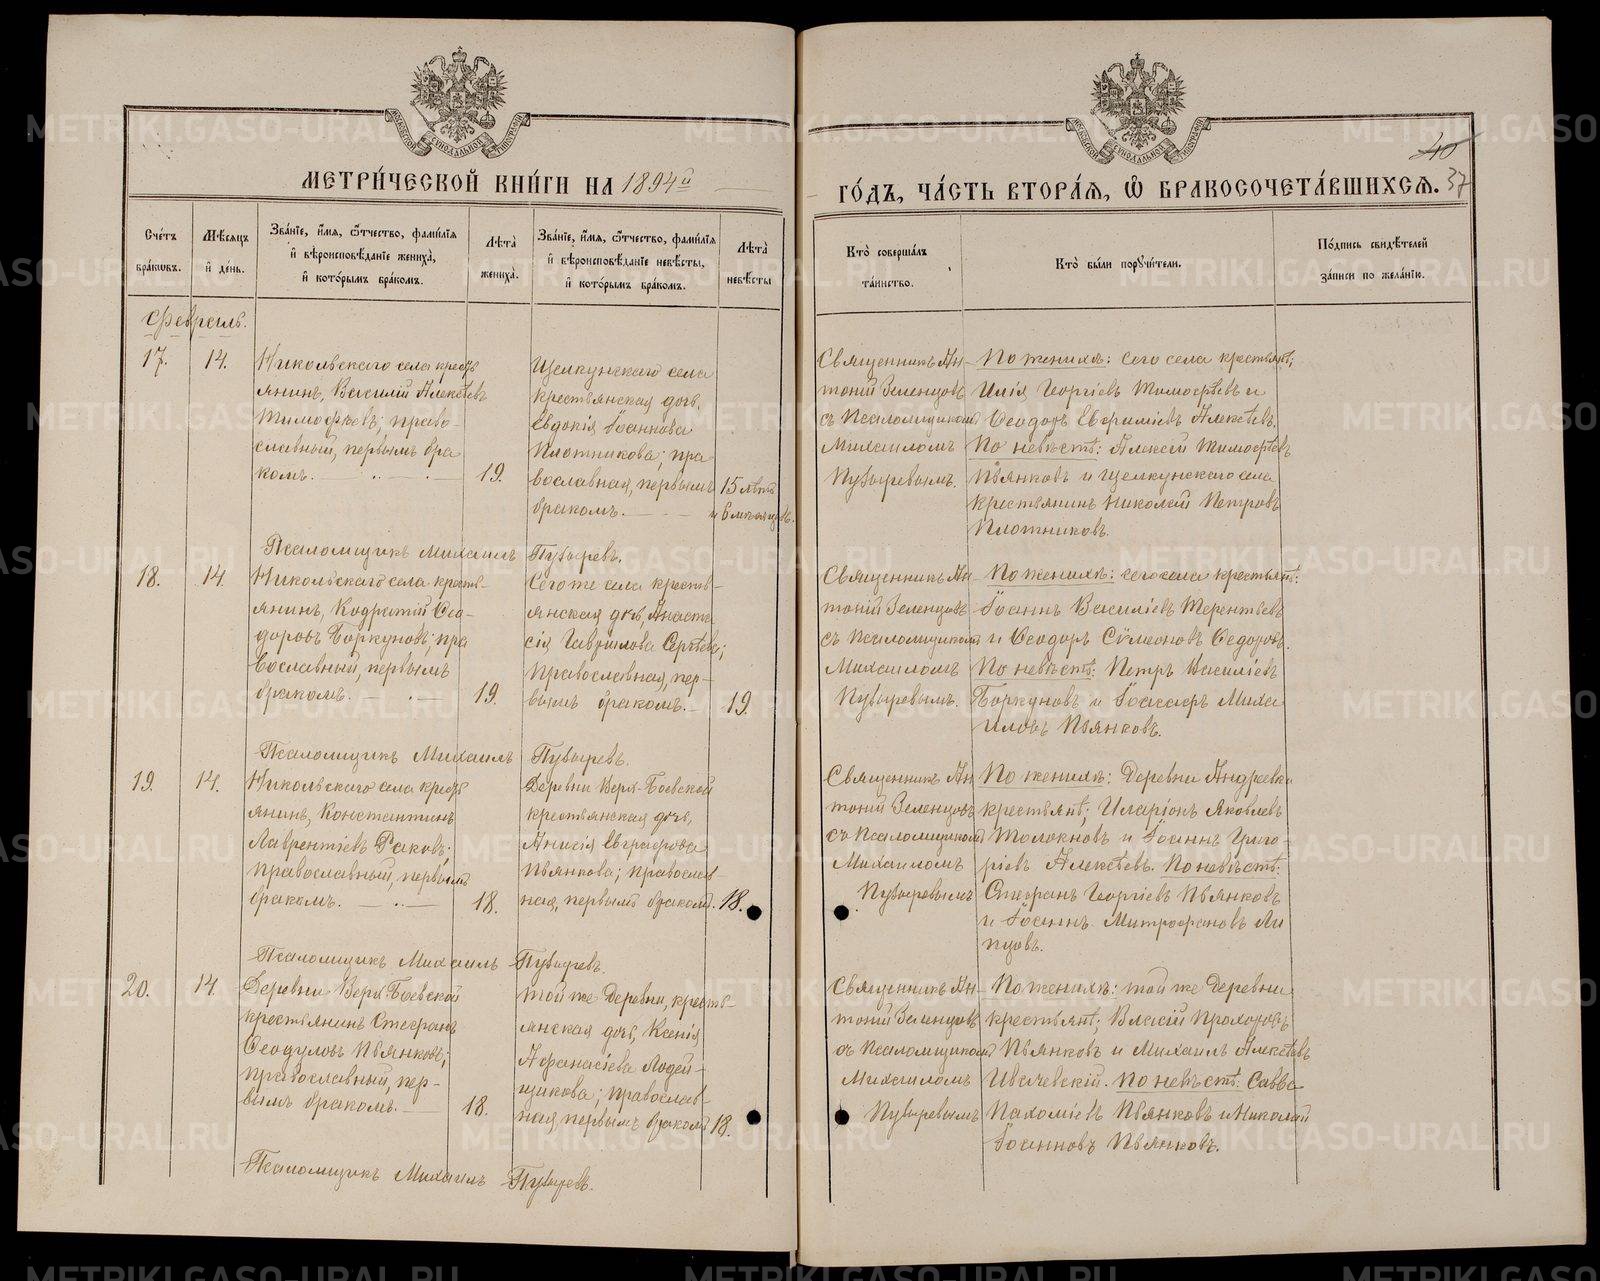 МЕТРИ́ЧЕСКОЙ КНИ́ГИ НА 1894й
ГО́ДЪ, ЧА́СТЬ ВТОРА́Я, Ѡ БРАКОСОЧЕТА́ВШИХСѦ.
40
37
Сче́тъ
бра́ковъ.
Мѣ́сяцъ
и҆ де́нь.
Зва́нїе, и҆́мя, ѻ҆́тчество, фами́лїя
и҆ вѣроисповѣ́данїе жениха̀,
и҆ кото́рымъ бра́комъ.
Лѣта̀
жениха̀.
Зва́нїе, и҆́мя, ѻ҆́тчество, фами́лїя
и҆ вѣроисповѣ́данїе невѣ́сты,
и҆ кото́рымъ бра́комъ.
Лѣта̀
невѣ́сты
Кто̀ соверша́лъ
та́инство.
Кто̀ бы́ли пору́чители.
По́дпись свидѣ́телей
за́писи по жела́нїю.
Февраль.
17.
14.
Никольскаго села крест
янинъ, Василій Алексѣевъ
Тимофѣевъ; право-
славный, первымъ бра
комъ.
19.
Щелкунскаго села
крестьянская дочь,
Евдокія Іоаннова
Плотникова; пра
вославная, первымъ
бракомъ.
15 лѣтъ
и 6 мѣсяцевъ.
Священникъ Ан-
тоній Зеленцовъ
съ Псаломщикомъ
Михаиломъ
Пузыревымъ.
По женихѣ: сего села крестьянѣ;
Илія Георгіевъ Тимофѣевъ и
Ѳеодоръ Евфиміевъ Алексѣевъ.
По невѣстѣ: Алексій Тимофѣевъ
Пьянковъ и Щелкунскаго села
крестьянинъ Николай Петровъ
Плотниковъ.
Псаломщикъ Михаилъ Пузыревъ.
18.
14.
Никольскаго села кресть-
янинъ, Кодратій Ѳео-
доровъ Боркуновъ; пра
вославный, первымъ
бракомъ.
19.
Сего же села кресть-
янская дочь, Анаста
сія Гавріилова Сергѣева;
православная, пер-
вымъ бракомъ.
19.
Священникъ Ан-
тоній Зеленцовъ
съ Псаломщикомъ
Михаиломъ
Пузыревымъ.
По женихѣ: сего села крестьянѣ:
Іоаннъ Василіевъ Терентьевъ
и Ѳеодоръ Сѵмеоновъ Ѳедоровъ.
По невѣстѣ: Петръ Василіевъ
Боркуновъ и Іоасафъ Миха
иловъ Пьянковъ.
Псаломщикъ Михаилъ Пузыревъ.
19.
14.
Никольскаго села крест
янинъ, Константинъ
Лаврентіевъ Раковъ;
православный, первымъ
бракомъ.
18.
Деревни Верх-Боевской
крестьянская дочь,
Анисія Евграфова
Пьянкова; православ
ная, первымъ бракомъ.
18.
Священникъ Ан
тоній Зеленцовъ
съ Псаломщикомъ
Михаиломъ
Пузыревымъ
По женихѣ: Деревни Андреевки
крестьянѣ; Иларіонъ Яковлевъ
Толокновъ и Іоаннъ Григо-
ріевъ Алексѣевъ. По невѣстѣ:
Стефанъ Георгіевъ Пьянковъ
и Іоаннъ Митрофановъ Ли
пцовъ.
Псаломщикъ Михаилъ Пузыревъ.
20.
14.
Деревни Верх Боевской
крестьянинъ Стефанъ
Ѳеодуловъ Пьянковъ;
православный, пер-
вымъ бракомъ.
18.
той же Деревни, кресть-
янская дочь, Ксенія
Афанасіева Лодей-
щикова; православ-
ная, первымъ бракомъ
18.
Священникъ Ан-
тоній Зеленцовъ
съ Псаломщикомъ
Михаиломъ
Пузыревымъ
По женихѣ: той же Деревни
крестьянѣ; Власій Прохоровъ
Пьянковъ и Михаилъ Алексѣевъ
Ивачевскій. По невѣстѣ: Савва
Пахоміевъ Пьянковъ и Николай
Іоанновъ Пьянковъ.
Псаломщикъ Михаилъ Пузыревъ.
METRIKI.GASO-URAL.RU